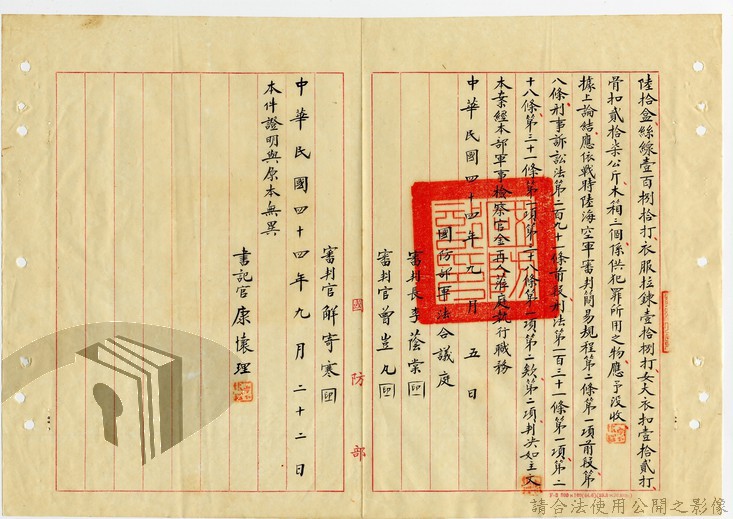 陸拾盒絲線壹百捌拾打衣服拉鍊壹拾捌打女大衣扣壹拾貳打
骨扣貳拾柒公斤木箱三個係供犯罪所用之物應予沒收
據上論結應依戰時陸海空軍審判簡易規程第二條第一項前段第
八條刑事訴訟法第二百九十一條前段刑法第一百三十一條第一項第二
十八條第三十一條第一項第三十八條第一項第二款第二項判決如主文
本案經本部軍事檢察官金再入蒞庭執行職務
中華民國四十四年九月五日
國防部軍法合議庭
審判長李蔭棠印
審判官曾豈凡印
審判官解寄寒印
中華民國四十四年九月二十二日
本件證明與原本無異
書記官康懷理
國防部
請合法使用公開之影像